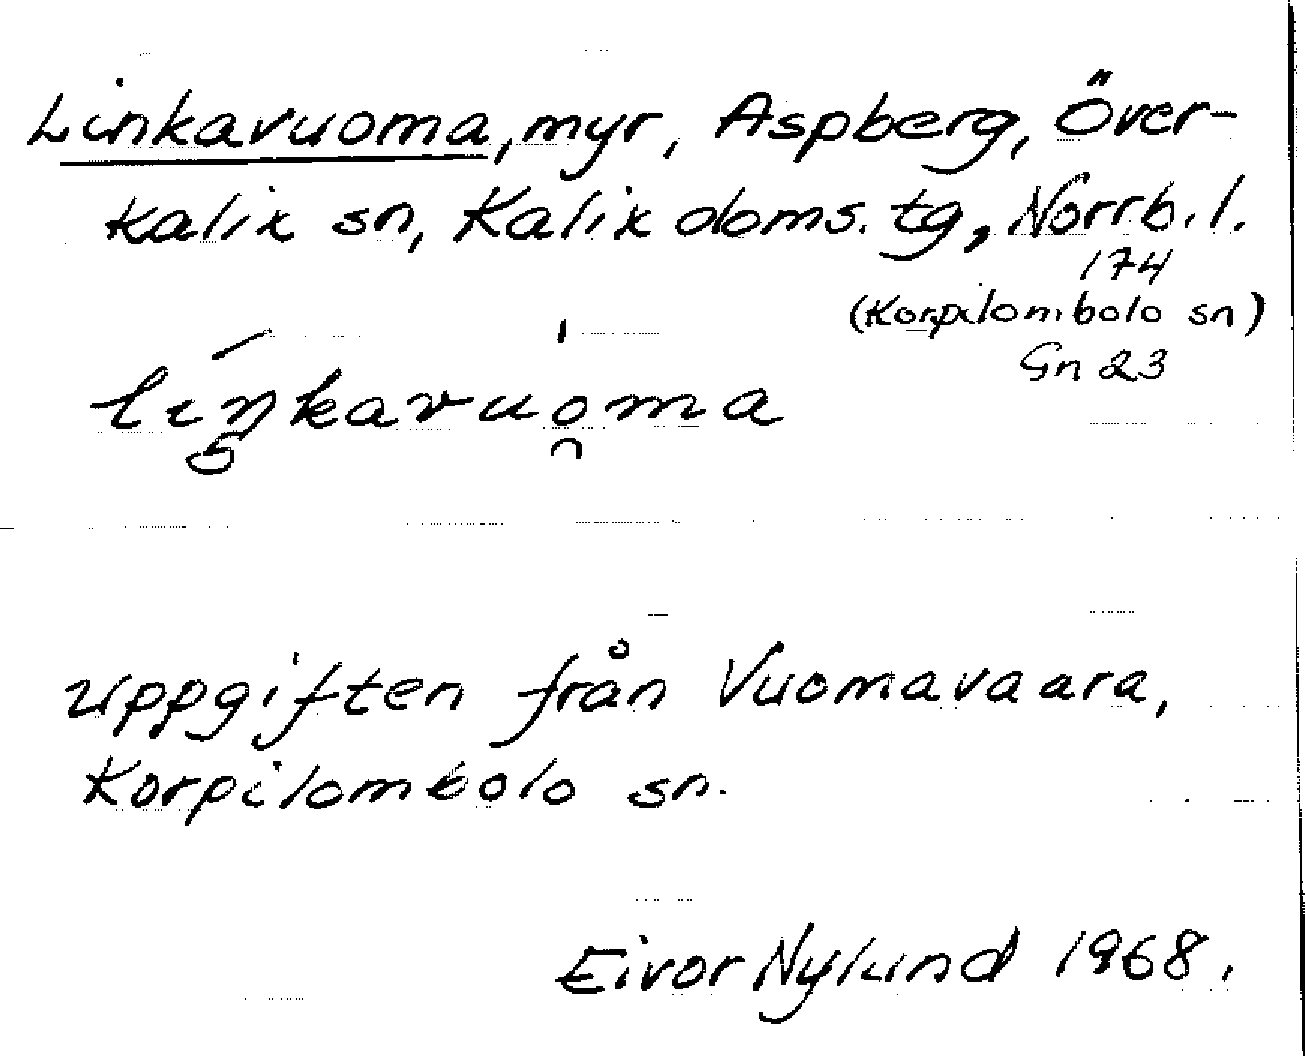 Linkavuoma, myr, Aspberg, Över-
kalix sn, Kalix doms. tg, Norrb. l.
174
(Korpilombolo sn)
Gn 23
liŋkavuo̯ma
Uppgiften från Vuomavaara,
Korpilombolo sn.
Eivor Nylund 1968.